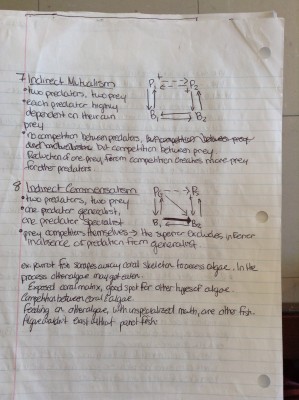 7 Indirect Mutualism
• two predators, two prey
• each predator highly
dependent on their own
prey
P1 P2
B1 B2
• no competition between predators, but competition between prey
Reduction of one prey, from competition creates more prey
for other predators
8 Indirect Commensalism
• two predators, two prey
• one predator generalist,
one predator specialist
P1 P2
B1 B2
• prey competitors themselves → the superior excludes inferior
incidence of predation from generalist.
ex. parrot fish scrapes away coral skeleton to access algae. In the
process other algae may get eaten.
Exposed coral matrix, good spot for other types of algae.
Competition between coral & algae.
Feeding on other algae, with unspecialized mouth, are other fish.
Algae wouldn't exist without parrot fish.